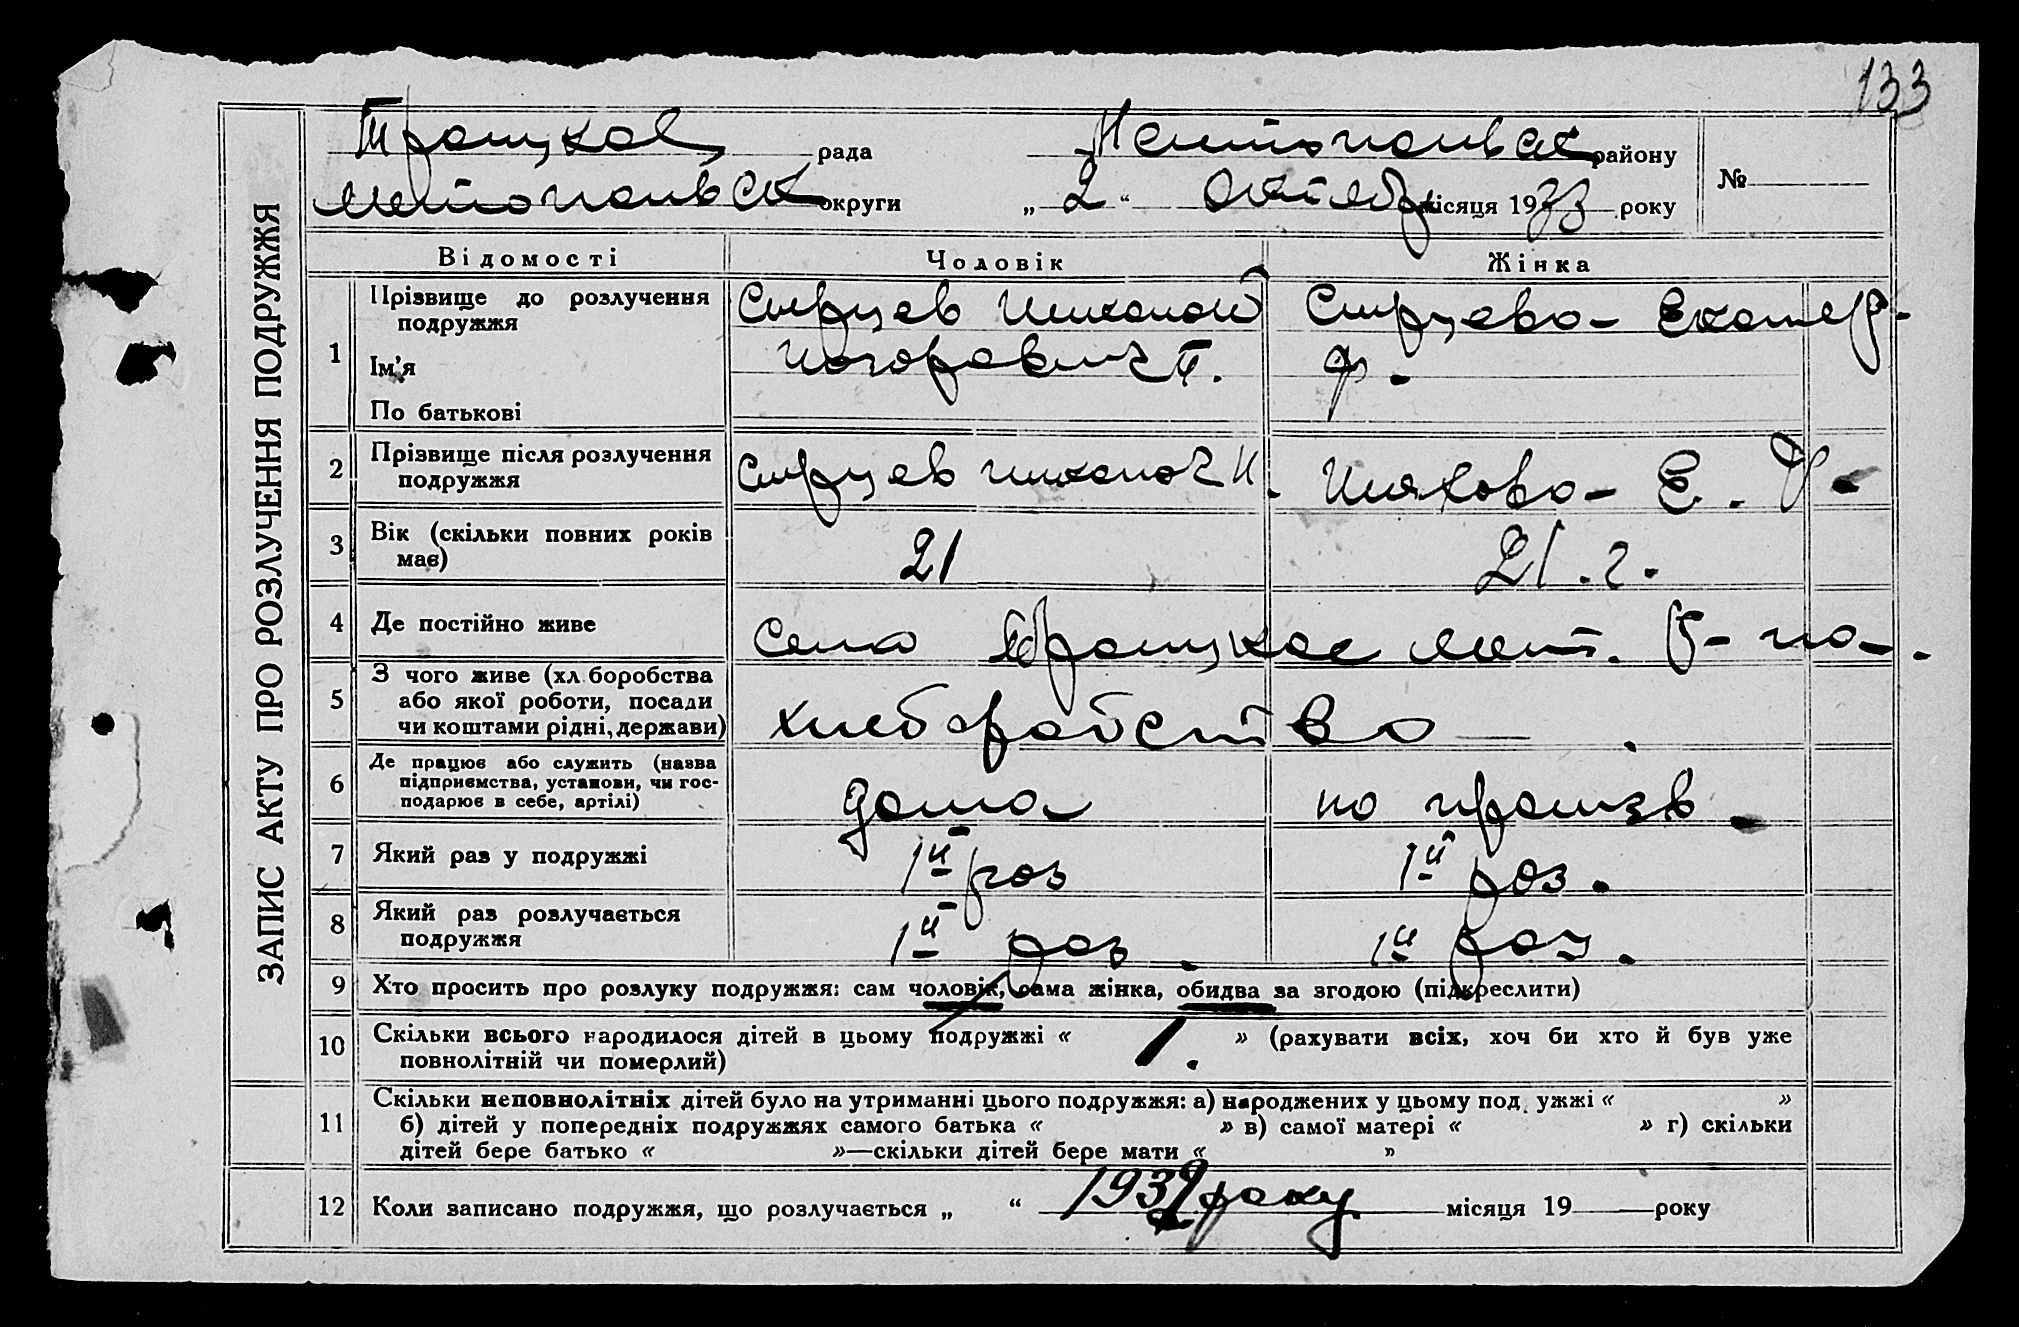 133
ЗАПИС АКТУ ПРО РОЗЛУЧЕННЯ ПОДРУЖЖЯ
Троицкая рада Мелитопольск району №
Мелитопольск округи „ 2 “ Октябр місяця 1933 року
Відомості Чоловік Жінка
1 Прізвище до розлучення подружжя Сырцев Николай Сырцева Екатер.
Ім'я Ф.
По батькові
2 Прізвище після розлучення подружжя Сырцев Е. Ф.
3 Вік (скільки повних років має) 21 21. г.
4 Де постійно живе Село Троицкое Мелит. р-на.
5 З чого живе (хліборобства або якої роботи, посади чи коштами рідні, держави) хлеборобство
6 Де працює або служить (назва підприємства, установи, чи господарює в себе, артілі) дома по произв.
7 Який раз у подружжі 1й раз 1й раз.
8 Який раз розлучається подружжя 1й раз. 1й раз.
9 Хто просить про розлуку подружжя: сам чоловік, сама жінка, обидва за згодою (підкреслити)
10 Скільки всього народилося дітей в цьому подружжі « 1. » (рахувати всіх, хоч би хто й був уже
повнолітній чи померлий)
11 Скільки неповнолітніх дітей було на утриманні цього подружжя: а) народжених у цьому под ужжі « »
б) дітей у попередніх подружжях самого батька « » в) самої матері « » г) скільки
дітей бере батько « »—скільки дітей бере мати « »
12 Коли записано подружжя, що розлучається „ “ 1932 року місяця 19 року